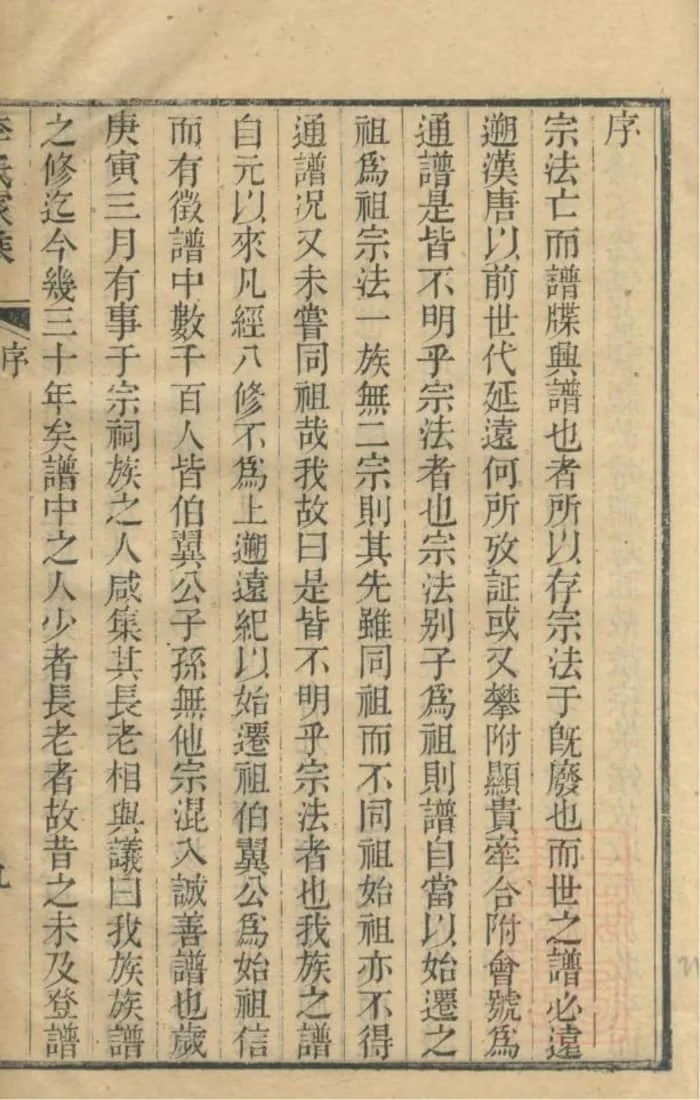 序
宗法亡而譜牒興譜也者所以存宗法于旣廢也而世之譜必遠
遡漢唐以前世代延遠何所攷証或又攀附顯貴牽合附會號爲
通譜是皆不明乎宗法者也宗法别子爲祖則譜自當以始遷之
祖爲祖宗法一族無二宗則其先雖同祖而不同祖始祖亦不得
通譜况又未嘗同祖哉我故曰是皆不明乎宗法者也我族之譜
自元以來凡經八修不爲上遡遠紀以始遷祖伯翼公爲始祖信
而有徵譜中數千百人皆伯翼公子孫無他宗混入誠善譜也歲
庚寅三月有事于宗祠族之人咸集其長老相與議曰我族族譜
之修迄今幾三十年矣譜中之人少者長老者故昔之未及登譜
李氏家乘
序
九